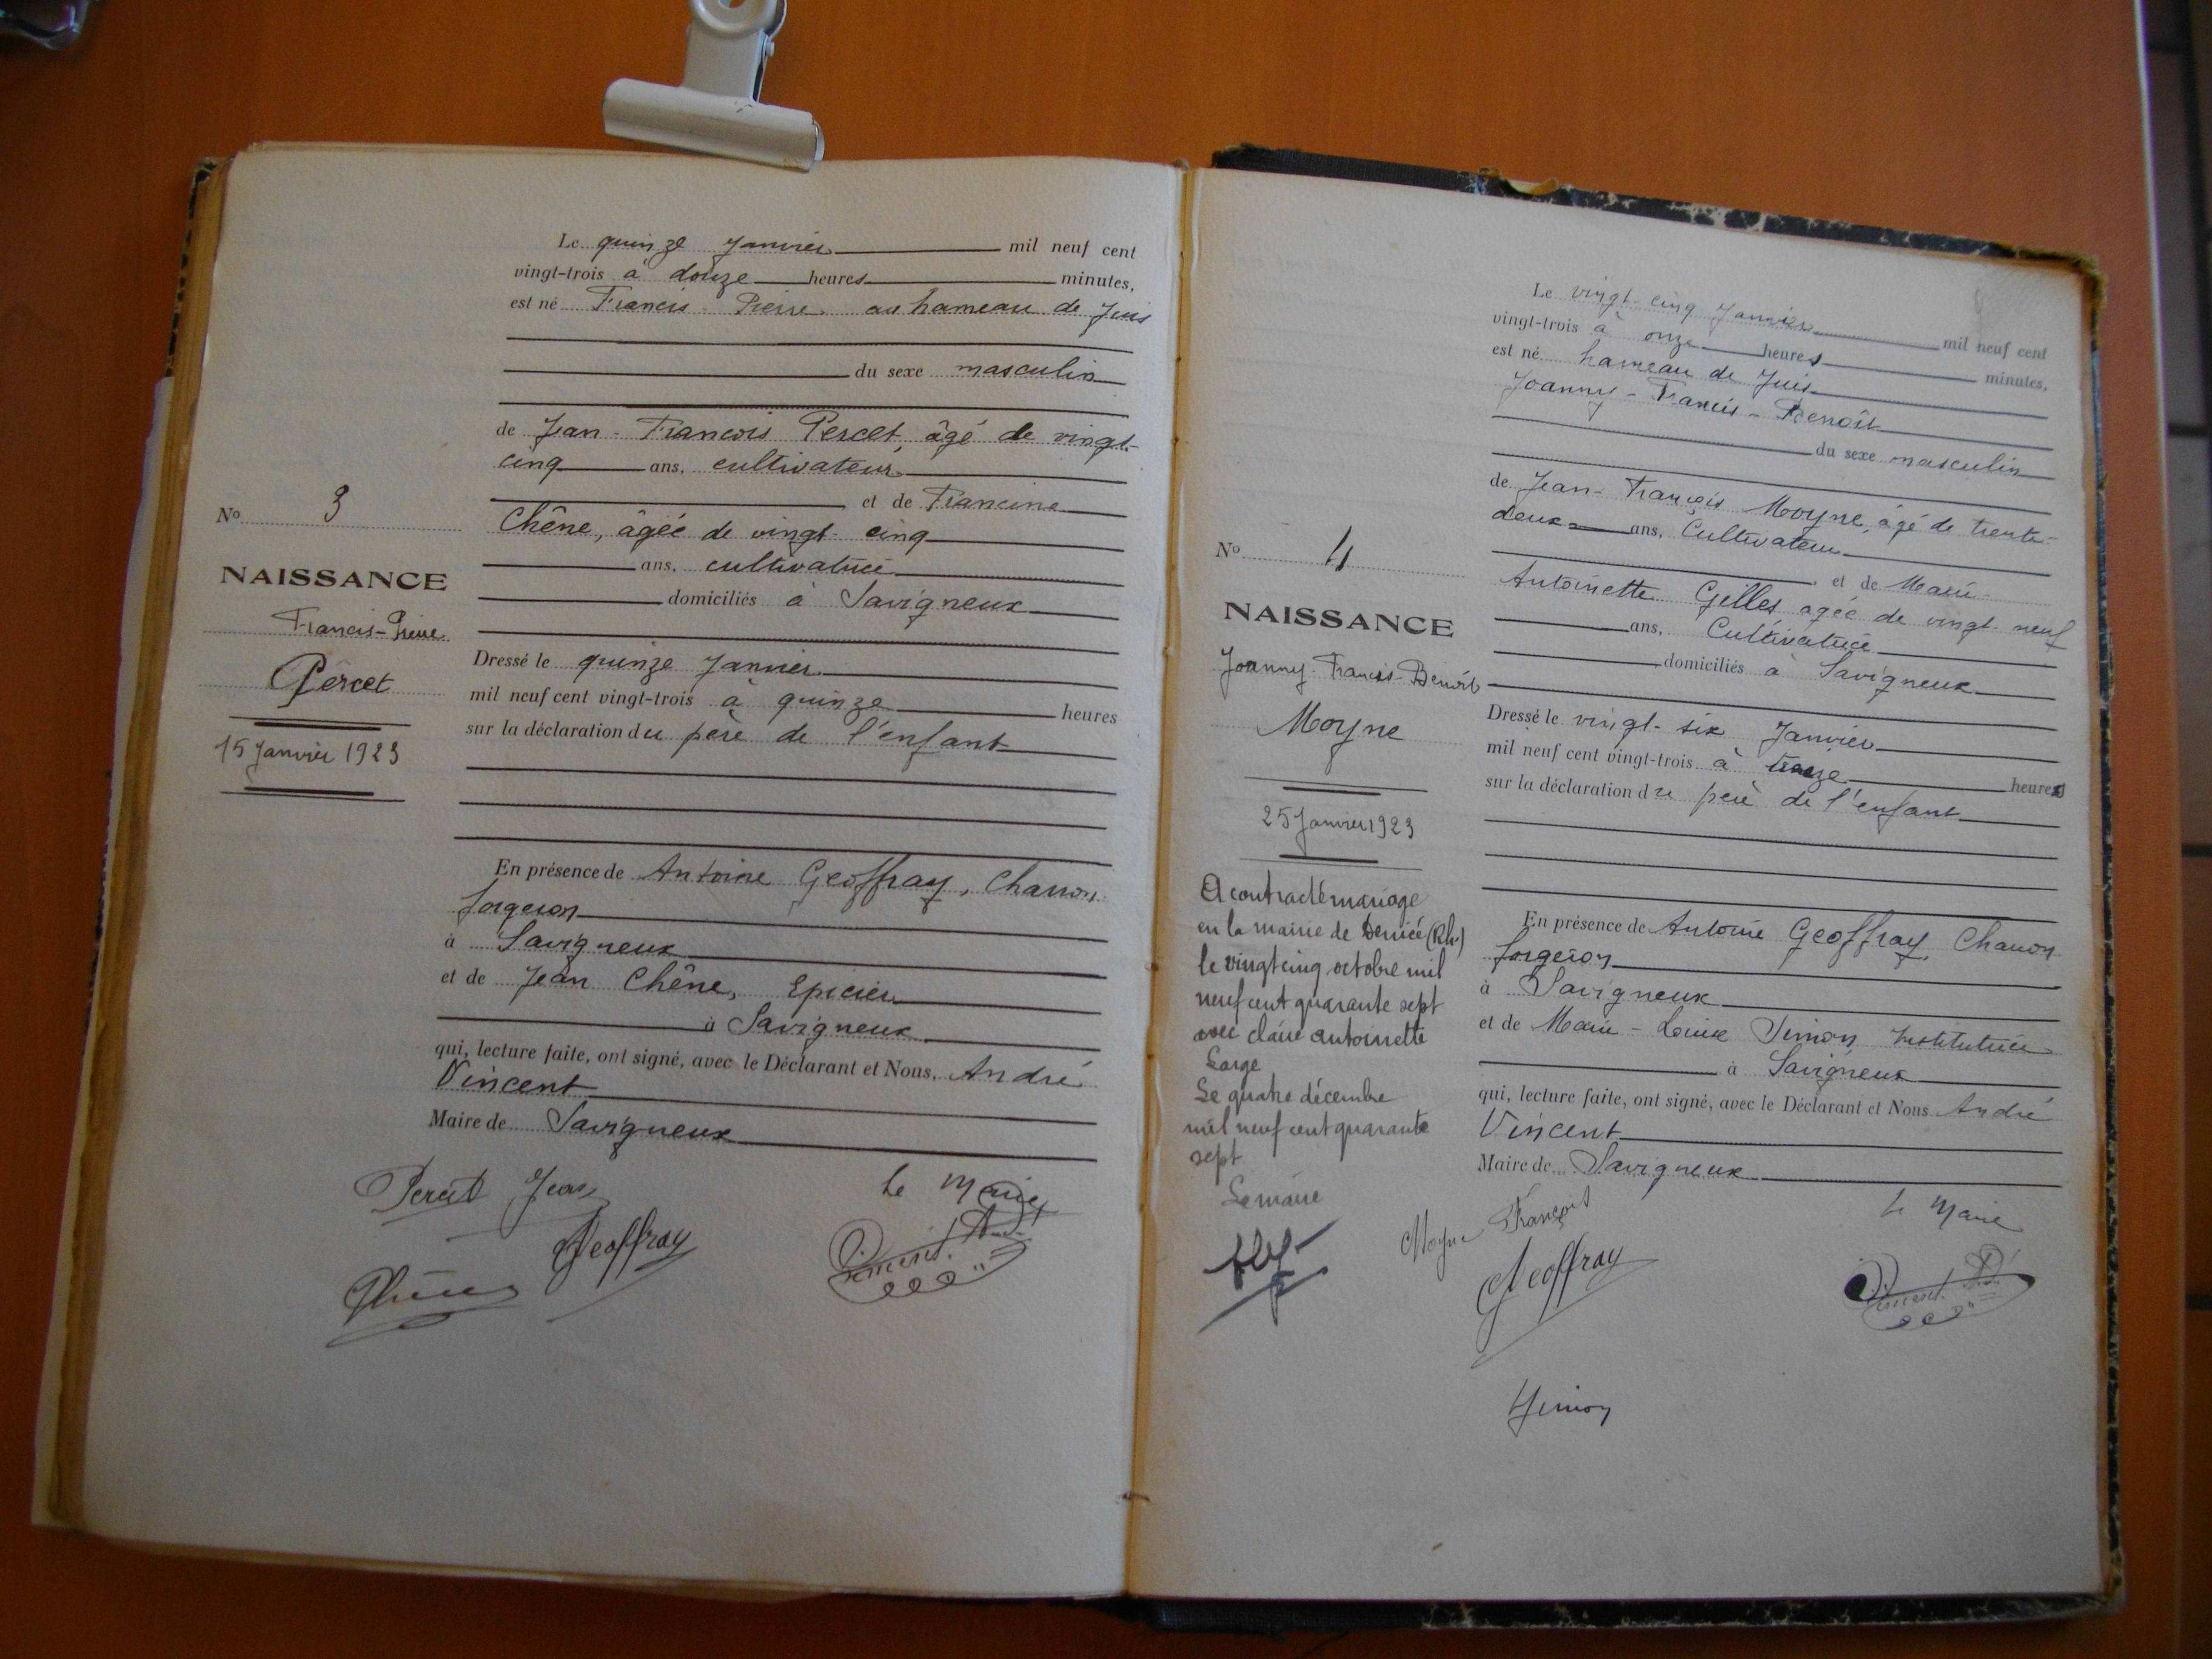 Le quinze Janvier mil neuf cent
vingt-trois à douze heures minutes,
est né Francis-Pierre au hameau de Juis
du sexe masculin
de Jean-François Percet, âgé de vingt-
cinq ans, cultivateur
et de Francine
Chêne, âgée de vingt-cinq
ans, cultivatrice
domiciliés à Savigneux
Dressé le quinze Janvier
mil neuf cent vingt-trois à quinze heures
sur la déclaration du père de l'enfant
En présence de Antoine Geoffray, Charron
forgeron
à Savigneux
et de Jean Chêne, Epicier
à Savigneux
qui, lecture faite, ont signé, avec le Déclarant et Nous, André
Vincent
Maire de Savigneux
No 3
NAISSANCE
Francis-Pierre
Percet
15 Janvier 1923
Percet Jean
Le Maire
Geoffray
Vincent A
Chêne
Le vingt-cinq Janvier mil neuf cent
vingt-trois à onze heures minutes,
est né hameau de Juis
Joanny-Francis-Benoît
du sexe masculin
de Jean-François Moyne, âgé de trente-
deux ans, Cultivateur
et de Marie-
Antoinette Gilles agée de vingt-neuf
ans, Cultivatrice
domiciliés à Savigneux
Dressé le vingt-six Janvier
mil neuf cent vingt-trois à heures
sur la déclaration du père de l'enfant
En présence de Antoine Geoffray, Charron
forgeron
à Savigneux
et de Marie-Louise Simon Institutrice
à Savigneux
qui, lecture faite, ont signé, avec le Déclarant et Nous André
Vincent
Maire de Savigneux
No 4
NAISSANCE
Joanny-Francis-Benoît
Moyne
25 Janvier 1923
A contracté mariage
en la mairie de Denicé (Rh.)
le vingt cinq octobre mil
neuf cent quarante sept
avec claire antoinette
Large
Le quatre décembre
mil neuf cent quarante
sept
Le maire
Moyne François
Le Maire
Geoffray
Vincent A
Simon